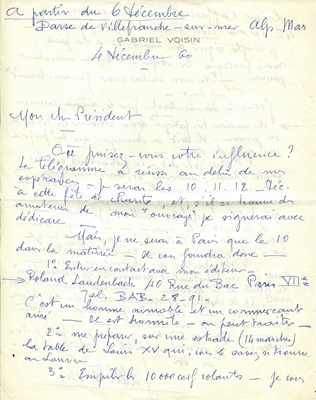 a partir du 6 Décembre
Darse de Villefranche-sur-mer Alp. Mar
GABRIEL VOISIN
4 Décembre 60
Mon ch Président
Où puisez-vous votre influence?
Le télégramme a réussi au delà de mes
espérances - je serai les 10. 11. 12 - Déc.
à cette fête de charité, et, s'il se trouve des
amateurs de mon "ouvrage" je signerai avec
dédicace
Mais, je ne serai à Paris que le 10
dans la matinée - il vous faudra donc -
1º. Entrer en contact avec mon éditeur -
Roland Laudenbach 40 Rue du Bac Paris VIIe
Tel. BAB - 28-91 -
C'est un homme aimable et un commerçant
avisé - Il est honnête - on peut traiter -
2º me préparer, sur une estrade (14 marches)
la table de Louis XV qui, vous le savez, se trouve
au Louvre
3º. Empiler les 10 000 cerf volants - je vous